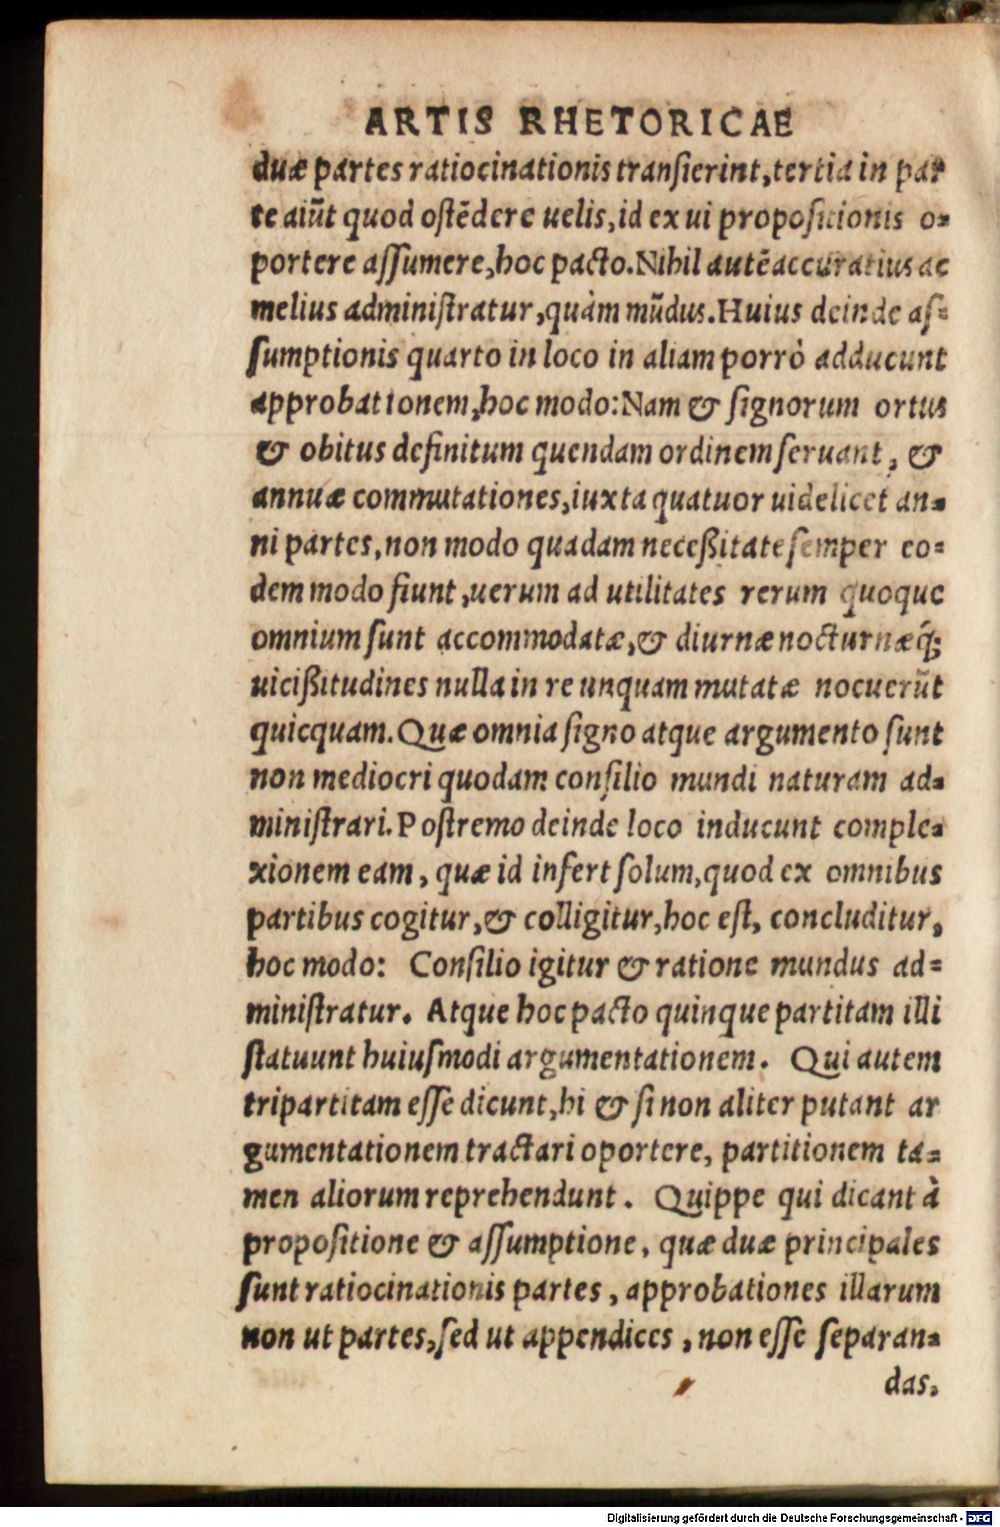 ARTIS RHETORICAE
duæ partes ratiocinationis transierint, tertia in par
te aiūt quod ostēdere uelis, id ex ui propositionis o-
portere assumere, hoc pacto. Nihil autē accuratius ac
melius administratur, quàm mūdus. Huius deinde as-
sumptionis quarto in loco in aliam porrò adducunt
approbationem, hoc modo: Nam & signorum ortus
& obitus definitum quendam ordinem seruant, &
annuæ commutationes, iuxta quatuor uidelicet an-
ni partes, non modo quadam neceßitate semper eo-
dem modo fiunt, uerum ad utilitates rerum quoque
omnium sunt accommodatæ, & diurnæ nocturnæq́;
uicißitudines nulla in re unquam mutatæ nocuerūt
quicquam. Quæ omnia signo atque argumento sunt
non mediocri quodam consilio mundi naturam ad-
ministrari. Postremo deinde loco inducunt comple-
xionem eam, quæ id infert solum, quod ex omnibus
partibus cogitur, & colligitur, hoc est, concluditur,
hoc modo: Consilio igitur & ratione mundus ad-
ministratur. Atque hoc pacto quinque partitam illi
statuunt huiusmodi argumentationem. Qui autem
tripartitam esse dicunt, hi & si non aliter putant ar
gumentationem tractari oportere, partitionem ta-
men aliorum reprehendunt. Quippe qui dicant à
propositione & assumptione, quæ duæ principales
sunt ratiocinationis partes, approbationes illarum
non ut partes, sed ut appendices, non esse separan-
das.
Digitalisierung gefördert durch die Deutsche Forschungsgemeinschaft - DFG